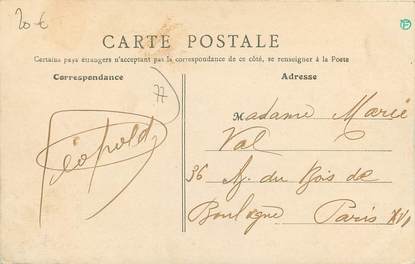 20 €
CARTE POSTALE
Certains pays étrangers n'acceptant pas la correspondance de ce côté, se renseigner à la Poste
Correspondance
Adresse
77
Léopold
Madame Marie
Val
36
Av. du Bois de
Boulogne Paris XVI